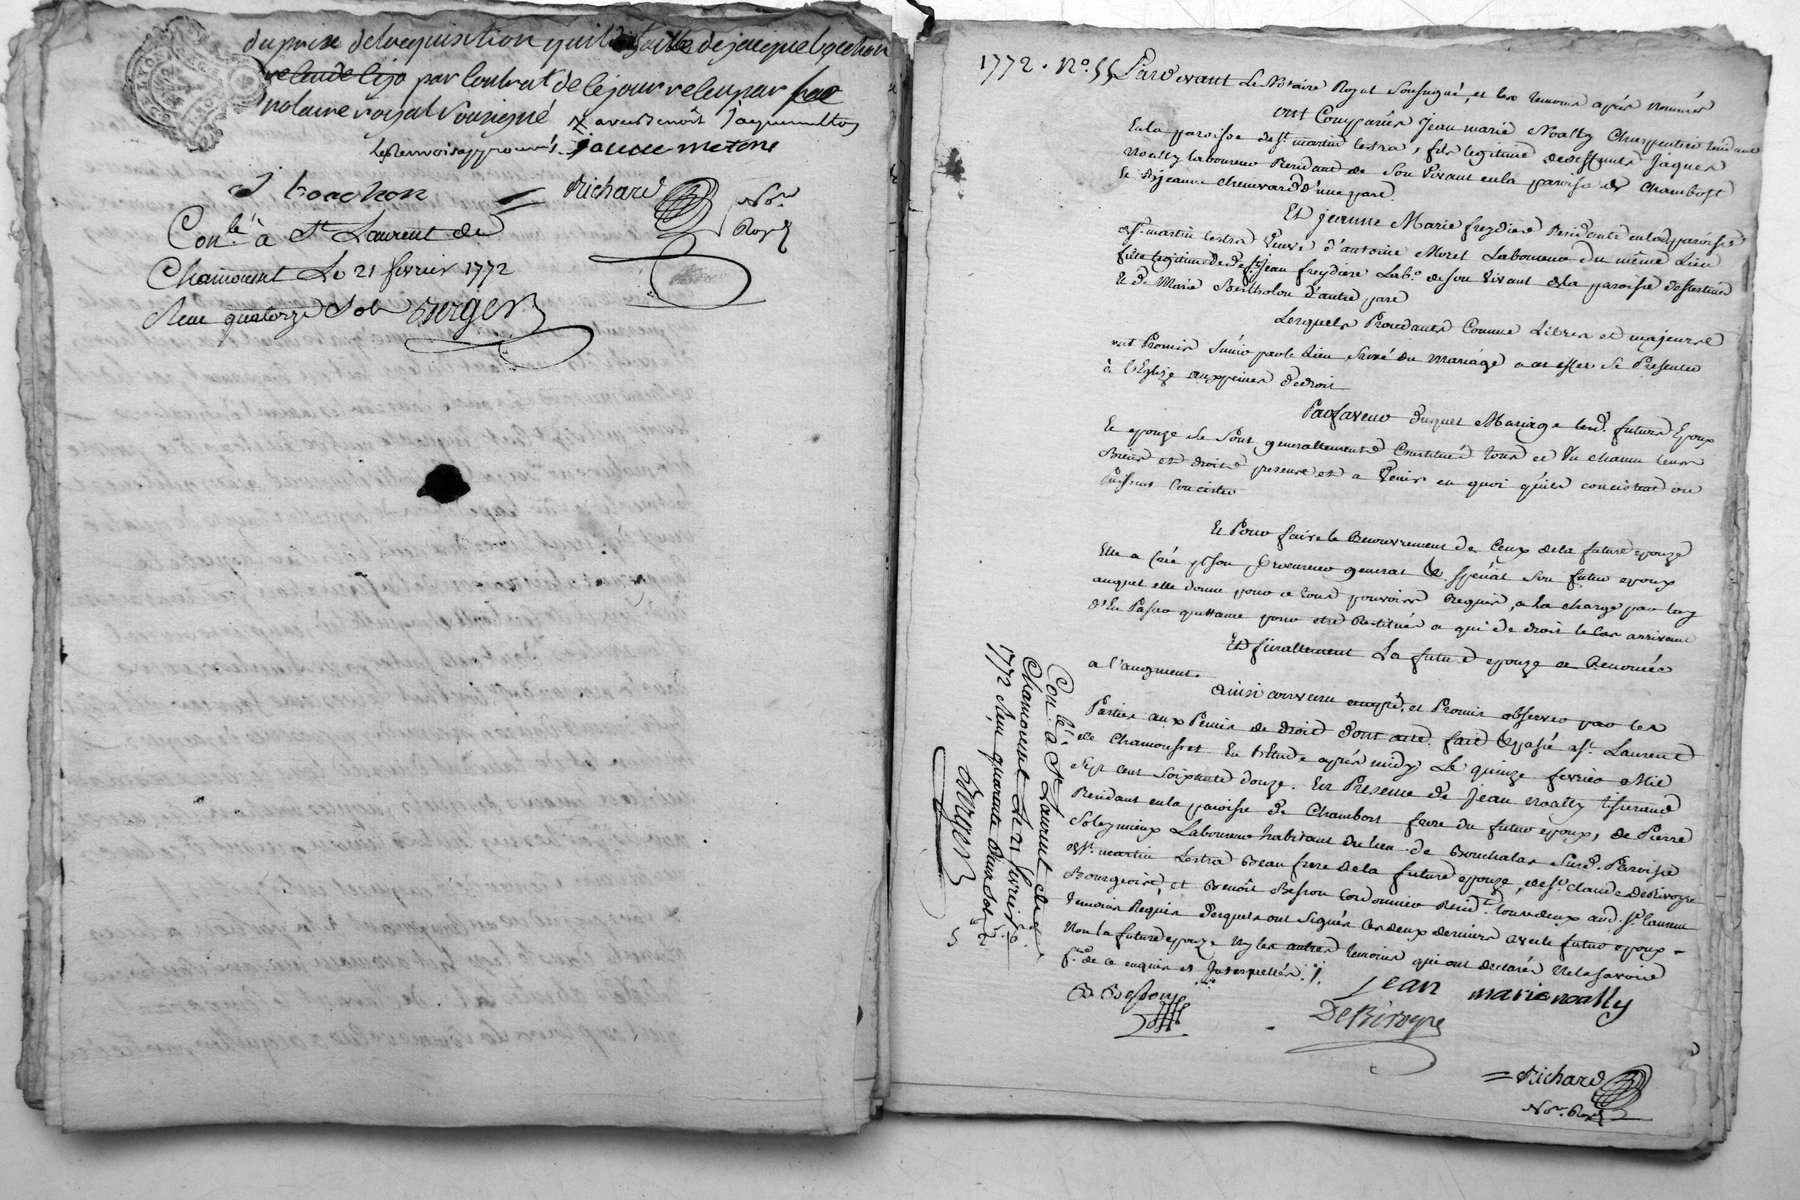 du prix de lacquisition quil faite de jacque bochon
par Contrat de Cejour recu par
notaire royal Sousigné avec benoit jaquemetton
les renvois approuvés. jaque metone
J bochon = Richard Nore Royal
Con.lé à St Laurent de
Chamousset Le 21 fevrier 1772
Reçu quatorze Sols Berger
1772. No. 55 Pardevant Le Notaire Royal Sousigné, et les temoins après nommés
ont Comparus Jean marie Noally Charpentier Residant
En la paroisse de St. martin lestra, fils legitime de deffunts Jaques
Noally laboureur Residant de Son Vivant en la paroisse de Chambost
Et de jeanne chenevard d'une part.
Et jeanne Marie freydiere Residante en lad. paroisse
de St. martin lestra Veuve d'antoine Moret Laboureur du même Lieu
fille legitime de deft. Jean freydiere Labr. de son Vivant de la paroisse
Et de Marie Bertholon d'autre part
Lesquels Procedants Comme Libres et majeurs
ont Promis S'unir par le Lien Sacré du mariage a cet effet de Se Presenter
à l'Eglise aux peines de droit
En faveur duquel Mariage lesd. futurs Epoux
Et epouze Se Sont generallement Constitués tous et Un chacun leurs
Biens et droits presents et a Venir en quoi qu'ils consistent ou
Puissent Consister
Et Pour faire le Recouvrement de Ceux de la future epouze
Elle a Créé pr Son Procureur general et special Son futur epoux
auquel elle donne pour ce tous pouvoirs Requis, a la charge par luy
d'En Passer quittance pour etre Restitués a qui de droit le Cas arrivant
Et finallement La future epouze a Renoncée
a l'augment.
Ainsi convenu accepté, et Promis observer par les
Parties aux Peines de droit dont acte. fait & passé a St. Laurent
de Chamousset En Etude après midy Le quinze fevrier Mil
Sept cent Soixante douze. En Presence de Jean Noally tisserand
Residant en la paroisse de Chambost frere du futur epoux, de Pierre
Soleymieux Laboureur habitant du lieu de Bouchalas Susd. Paroisse
de St. martin Lestra Beau frere de la future epouze, de Sr. claude DeRivoyre
Bourgeois, et Benoît Besson Cordonnier Residt. tous deux aud. St. laurent
temoins Requis Lesquels ont Signés Les deux derniers avec le futur epoux
Non la future epouze Ny les autres temoins qui ont declarés Ne le Savoir
fre. de ce enquis et Interpellés. /.
B Besson
jean marie noally
DeRivoyre
= Richard
Nore. Royal
Con.lé à St Laurent de
Chamousset Le 21 fevrier
1772 Reçu quarante deux Sols
Berger